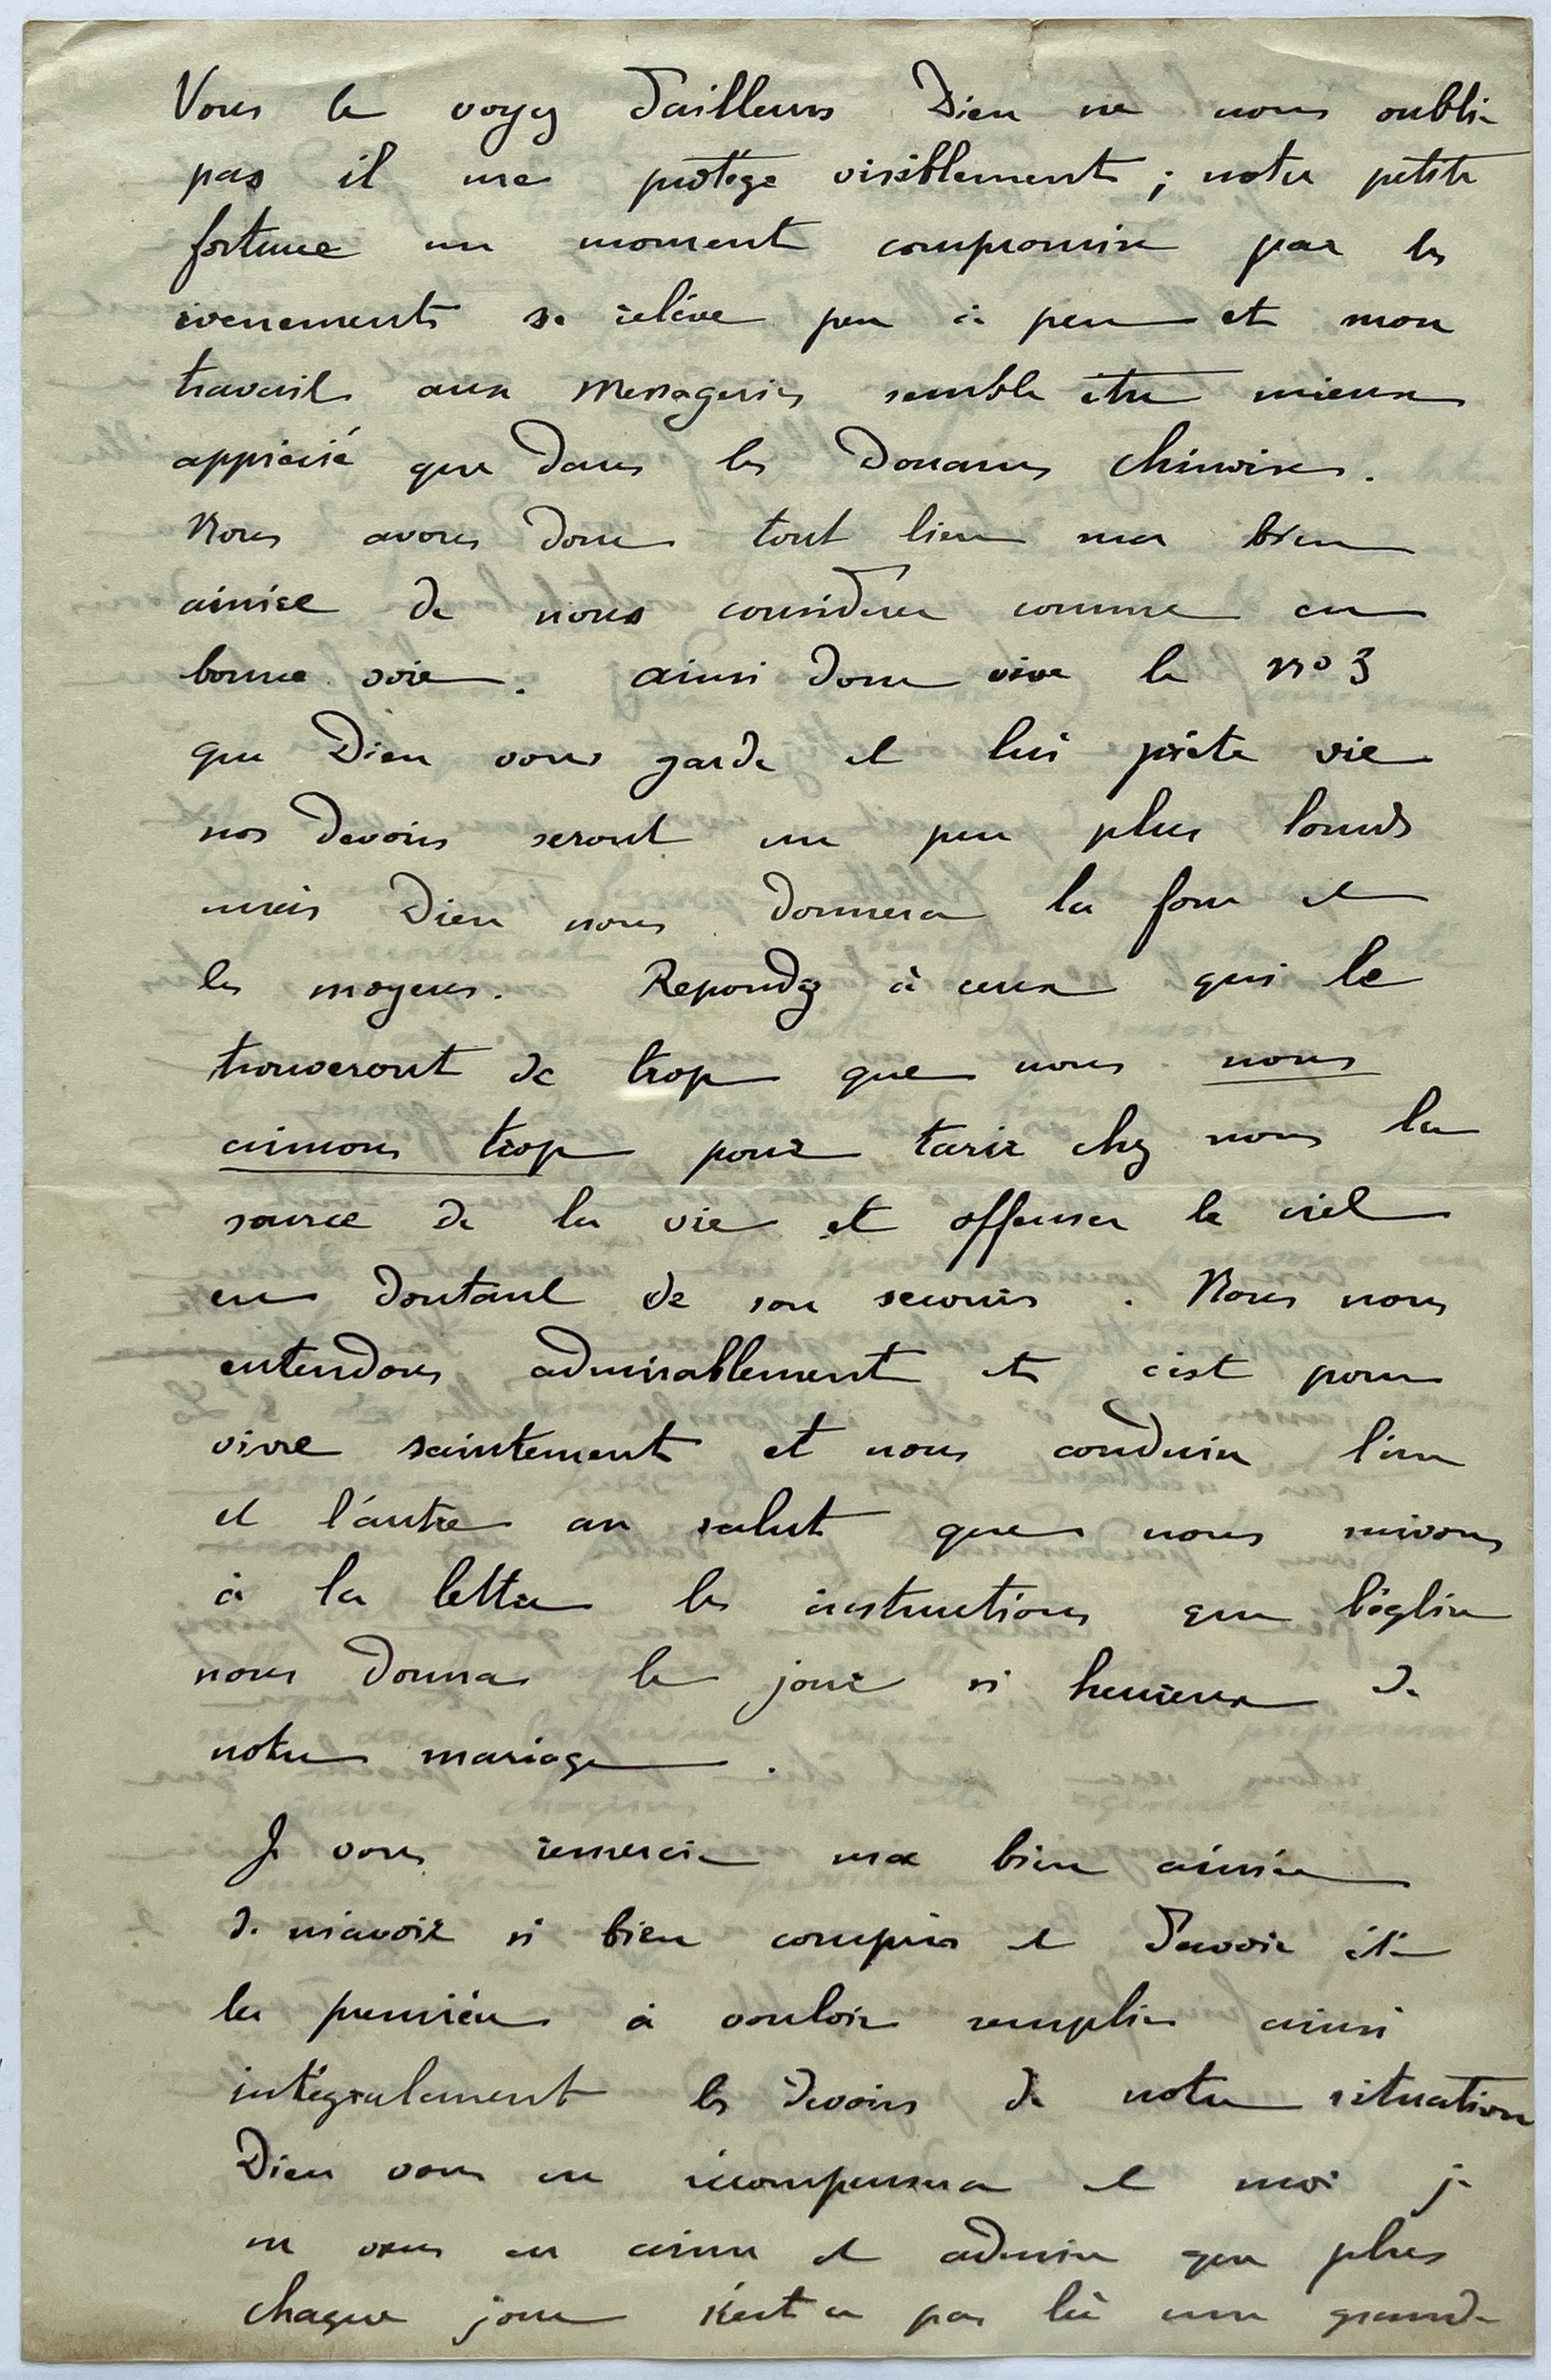 Vous le voyez d'ailleurs Dieu ne nous oublie
pas il me protège visiblement ; notre petite
fortune un moment compromise par les
évenements se relève peu à peu et mon
travail aux Messageries semble être mieux
apprécié que dans les Douanes chinoises.
Nous avons donc tout lieu ma bien
aimée de nous considérer comme en
bonne voie. ainsi donc vive le no 3
que Dieu vous garde et lui prête vie
nos devoirs seront un peu plus lourds
mais Dieu nous donnera la force et
les moyens. Repondez à ceux qui le
trouveront de trop que nous nous
aimons trop pour tarir chez nous la
source de la vie et offenser le ciel
en doutant de son secours. Nous nous
entendons admirablement et c'est pour
vivre saintement et nous conduire l'un
et l'autre au salut que nous suivons
à la lettre les instructions que l'église
nous donna le jour si heureux de
notre mariage.
Je vous remercie ma bien aimée
de m'avoir si bien compris et d'avoir été
la première à vouloir remplir ainsi
intégralement les devoirs de notre situation
Dieu vous en récompensera et moi je
ne vous en aime et admire que plus
chaque jour N'est ce pas là une grande